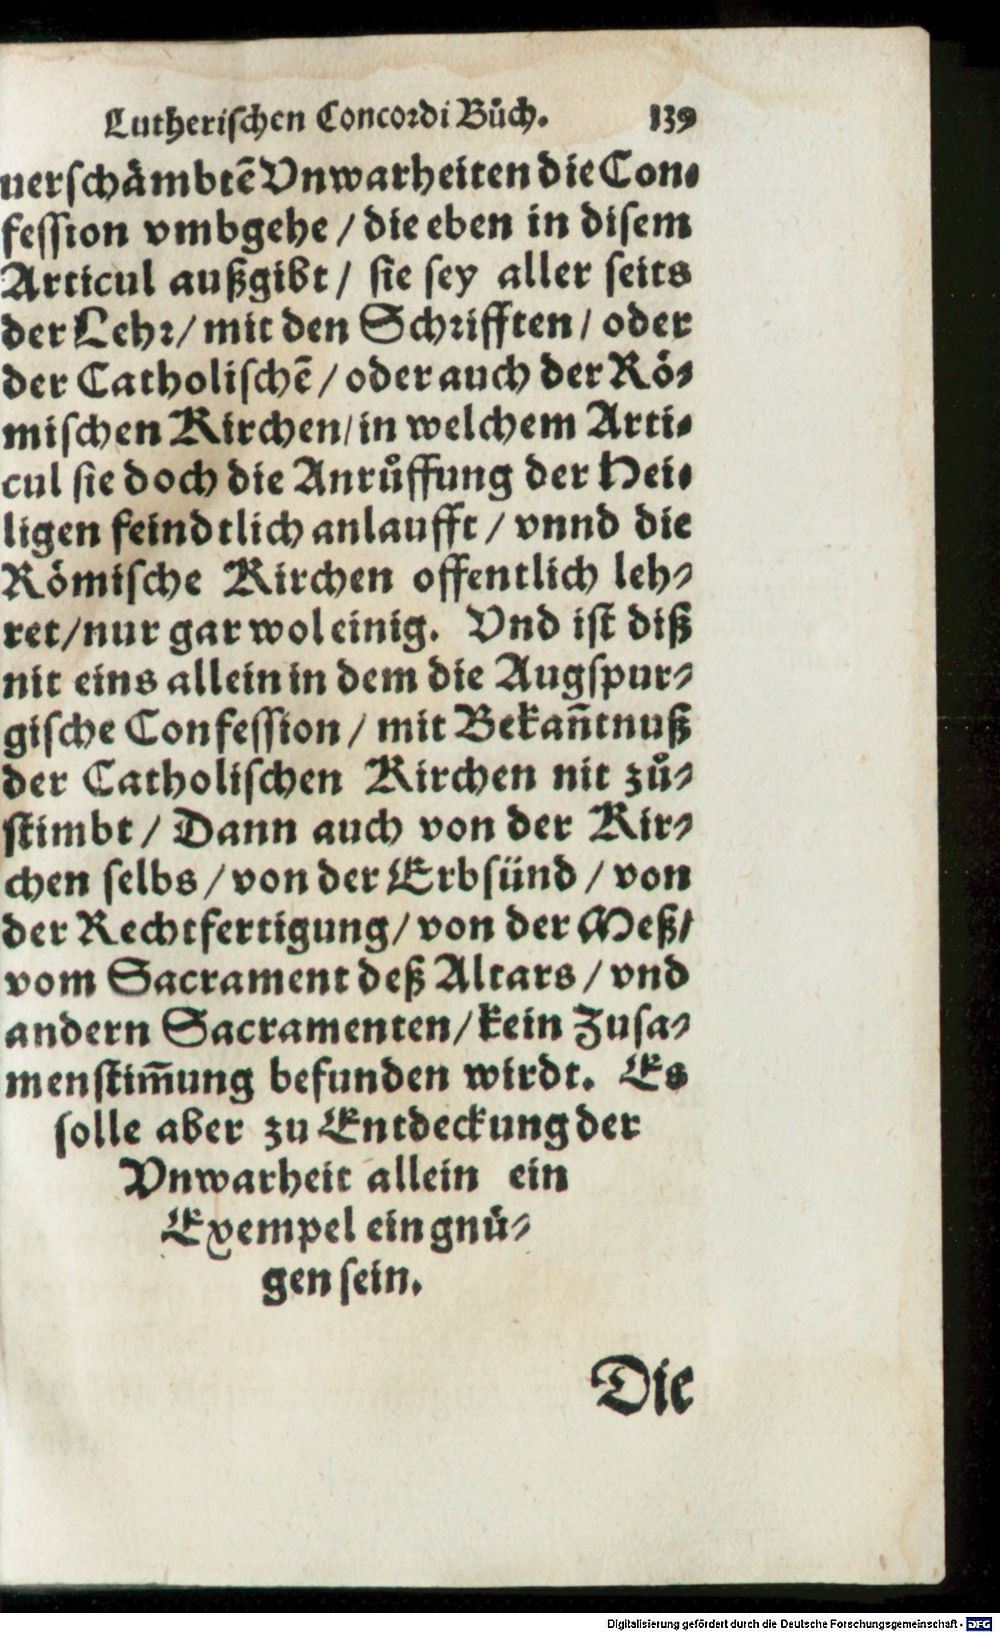 Lutherischen Concordi Bůch. 139
uerschämbtẽ Vnwarheiten die Con⸗
fession vmbgehe / die eben in disem
Articul außgibt / sie sey aller seits
der Lehr / mit den Schrifften / oder
der Catholischẽ / oder auch der Rö⸗
mischen Kirchen / in welchem Arti⸗
cul sie doch die Anrůffung der Hei⸗
ligen feindtlich anlaufft / vnnd die
Römische Kirchen offentlich leh⸗
ret / nur gar wol einig. Vnd ist diß
nit eins allein in dem die Augspur⸗
gische Confession / mit Bekañtnuß
der Catholischen Kirchen nit zů⸗
stimbt / Dann auch von der Kir⸗
chen selbs / von der Erbsünd / von
der Rechtfertigung / von der Meß /
vom Sacrament deß Altars / vnd
andern Sacramenten / kein Zusa⸗
menstim̃ung befunden wirdt. Es
solle aber zu Entdeckung der
Vnwarheit allein ein
Exempel ein gnů⸗
gen sein.
Die
Digitalisierung gefördert durch die Deutsche Forschungsgemeinschaft - DFG